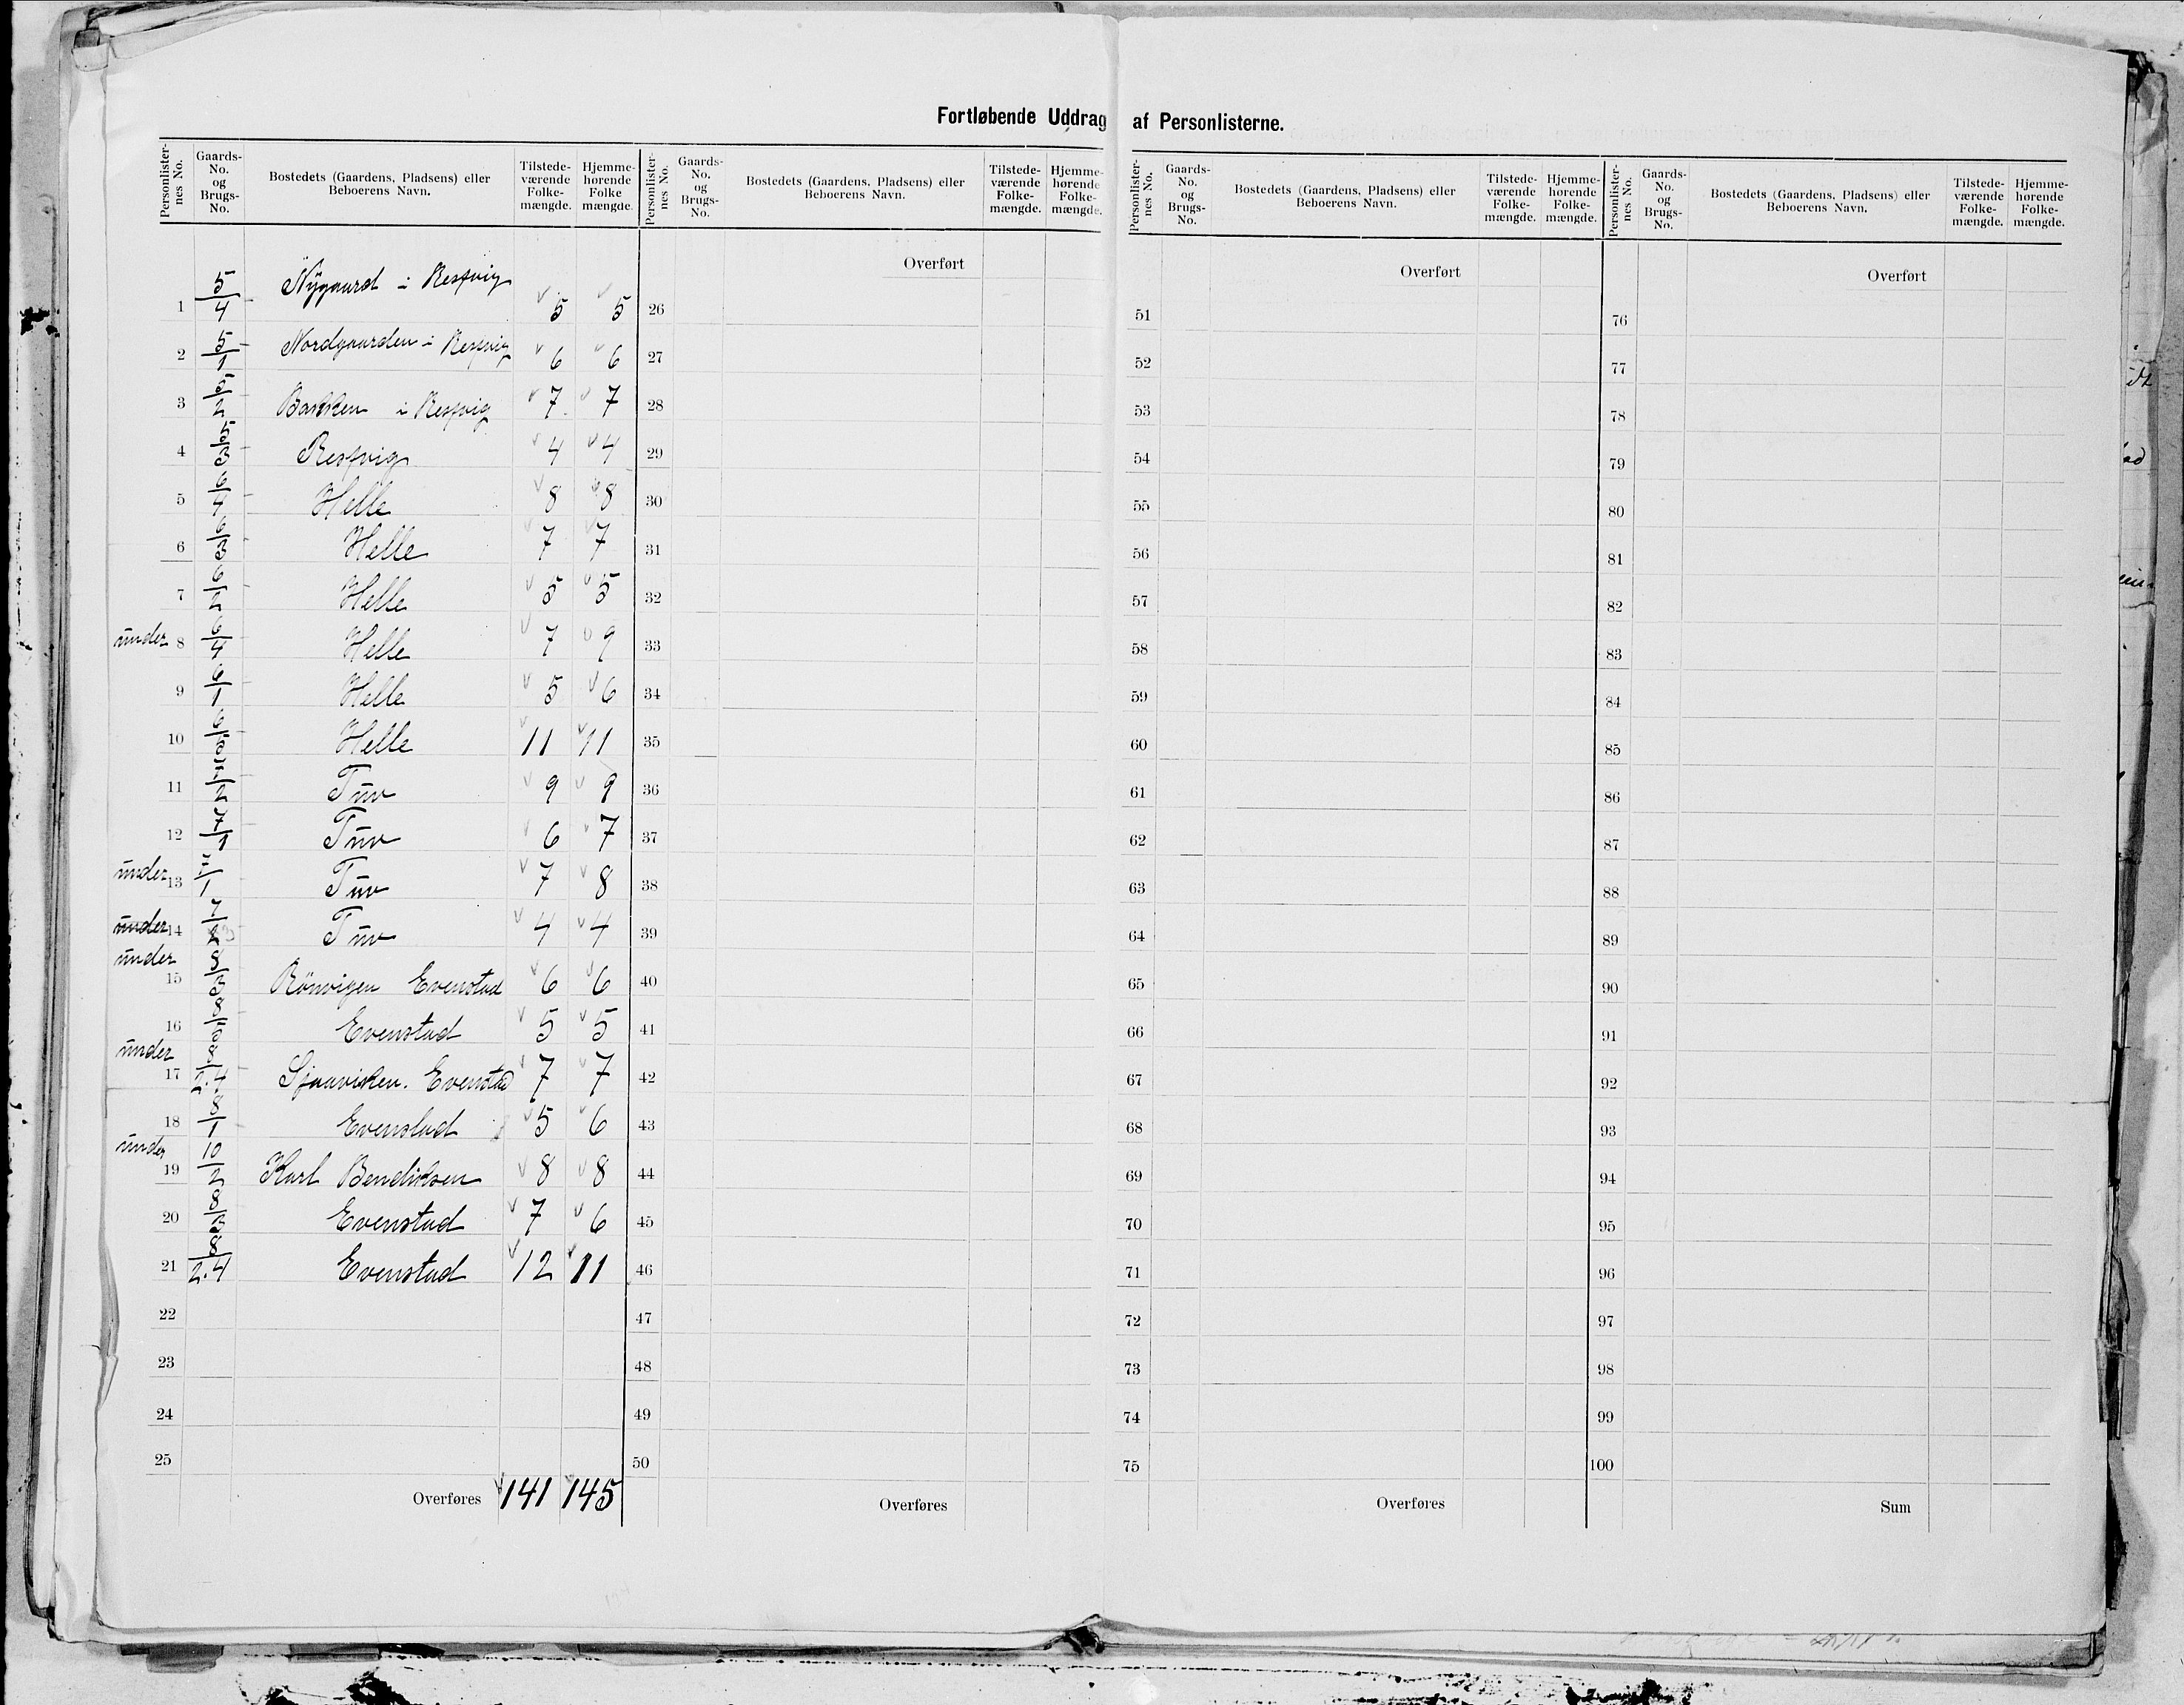 Fortløbende Uddrag af Personlisterne.
Personlister-nes No. Gaards-No. og Brugs-No. Bostedets (Gaardens, Pladsens) eller Beboerens Navn. Tilstede-værende Folke-mængde. Hjemme-hørende Folke mængde.
Personlister-nes No. Gaards-No. og Brugs-No. Bostedets (Gaardens, Pladsens) eller Beboerens Navn. Tilstede-værende Folke-mængde. Hjemme-hørende Folke-mængde.
Personlister-nes No. Gaards-No. og Brugs-No. Bostedets (Gaardens, Pladsens) eller Beboerens Navn. Tilstede-værende Folke-mængde. Hjemme-hørende Folke-mængde.
Personlister-nes No. Gaards-No. og Brugs-No. Bostedets (Gaardens, Pladsens) eller Beboerens Navn. Tilstede-værende Folke-mængde. Hjemme-hørende Folke-mængde.
1 5/4 Nygaard i Resvig 5 5
2 5/1 Nordgaarden i Resvig 6 6
3 5/2 Bakken i Resvig 7 7
4 5/3 Resvig 4 4
5 6/4 Helle 8 8
6 6/3 Helle 7 7
7 6/2 Helle 5 5
under 8 6/4 Helle 7 9
9 6/1 Helle 5 6
10 6/5 Helle 11 11
11 7/2 Tuv 9 9
12 7/1 Tuv 6 7
under 13 Tuv 7 8
under 14 Tuv 4 4
under
15 8/3 Rönvigen Evenstad 6 6
16 8/5 Evenstad 5 5
under
17 8/2.4 Sjaaviken. Evenstad 7 7
18 8/1 Evenstad 5 6
under
19 10/2 Karl Bendiksen 8 8
20 8/3 Evenstad 7 6
21 8/2.4 Evenstad 12 11
22
23
24
25
Overføres 141 145
Overført
26
27
28
29
30
31
32
33
34
35
36
37
38
39
40
41
42
43
44
45
46
47
48
49
50
Overføres
Overført
51
52
53
54
55
56
57
58
59
60
61
62
63
64
65
66
67
68
69
70
71
72
73
74
75
Overføres
Overført
76
77
78
79
80
81
82
83
84
85
86
87
88
89
90
91
92
93
94
95
96
97
98
99
100
Sum